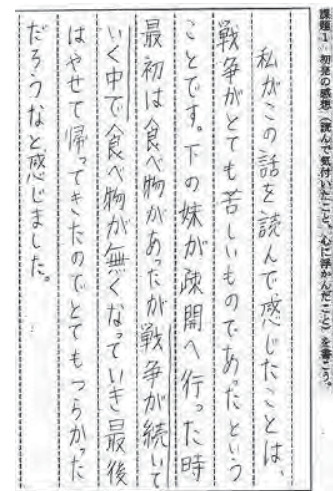 課題1 初発の感想（読んで気付いたこと、心に浮かんだこと）を書こう。
私がこの話を読んで感じたことは、
戦争がとても苦しいものであったという
ことです。下の妹が疎開へ行った時
最初は食べ物があったが戦争が続いて
いく中で食べ物が無くなっていき最後
はやせて帰ってきたのでとてもつらかった
だろうなと感じました。